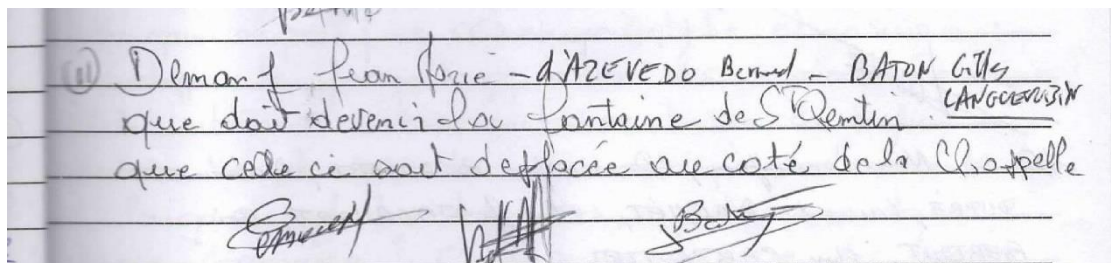 (11) Demany Jean Marie - d'AZEVEDO Bernard - BATON Gilles
LANGUENSIN
que doit devenir la fontaine de St Quentin
que celle ci soit deplacée au coté de la Chappelle